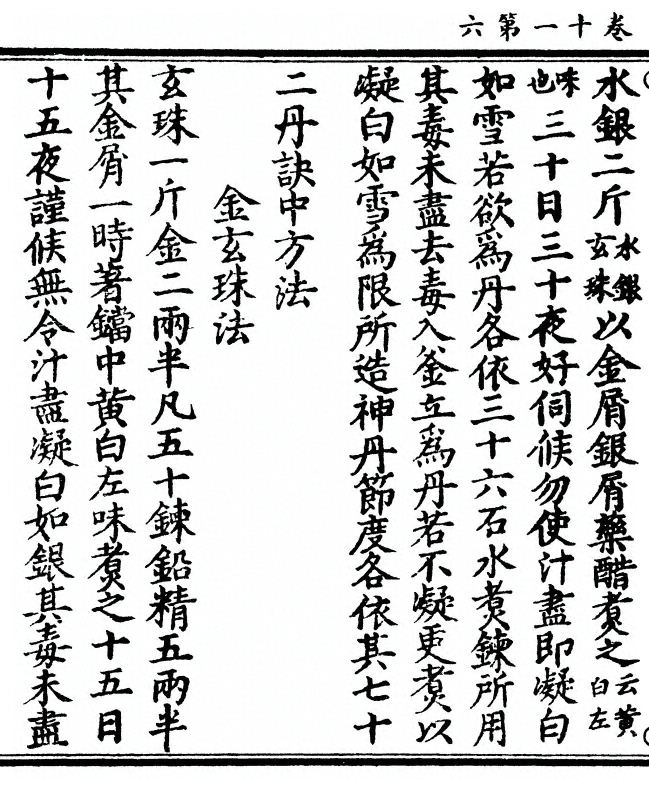 卷十一第六
水銀二斤水銀玄珠以金屑銀屑藥醋煮之云黄白左
味也三十日三十夜好伺候勿使汁盡即凝白
如雪若欲爲丹各依三十六石水煮鍊所用
其毒未盡去毒入釜立爲丹若不凝更煮以
凝白如雪爲限所造神丹節度各依其七十
二丹訣中方法
金玄珠法
玄珠一斤金二兩半凡五十鍊鉛精五兩半
其金屑一時著鐺中黄白左味煮之十五日
十五夜謹候無令汁盡凝白如銀其毒未盡